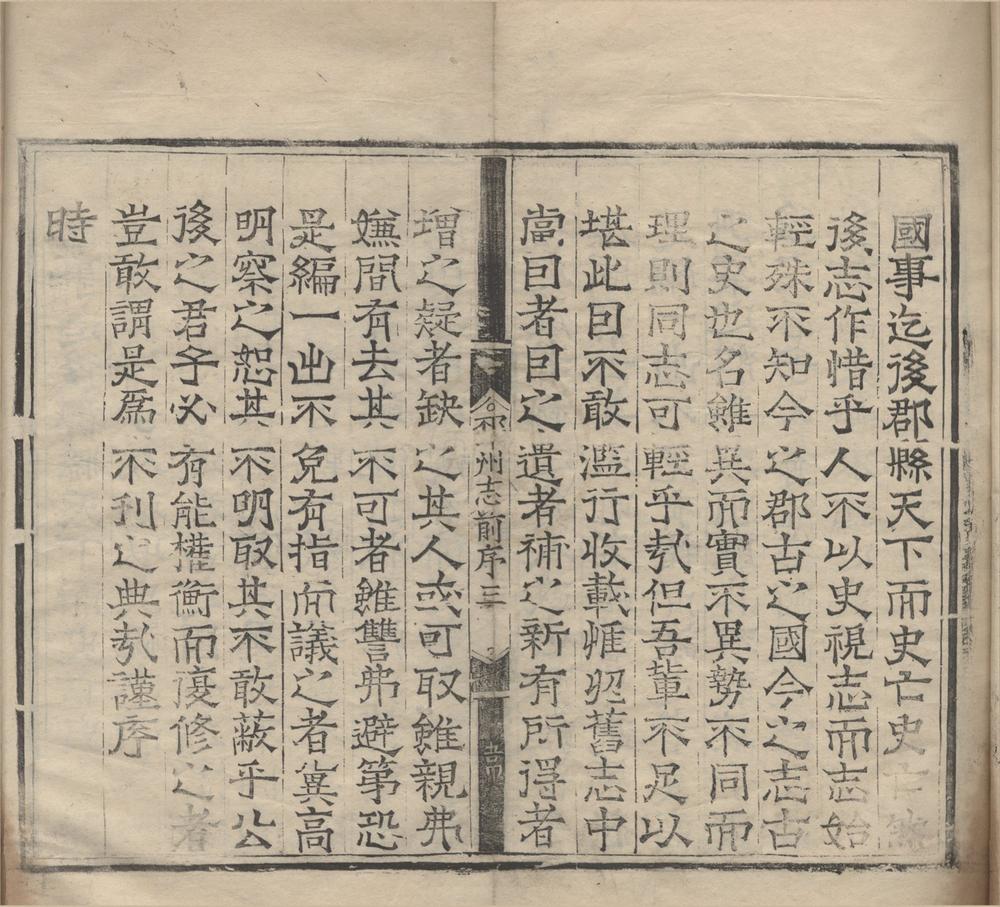 國事迄後郡縣天下而史亡史亡然
後志作惜乎人不以史視志而志始
輕殊不知今之郡古之國今之志古
之史也名雖異而實不異勢不同而
理則同志可輕乎㢤但吾軰不足以
堪此曰不敢濫行收載惟即舊志中
當曰者曰之遺者補之新有所淂者
州志前序三
增之疑者缺之其人或可取雖親弗
嫌間有去其不可者雖讐弗避第恐
是編一出不免有指而議之者兾高
明察之恕其不明取其不敢蔽乎公
後之君子必有能權衡而復修之者
豈敢謂是爲不刊之典㢤謹序
時